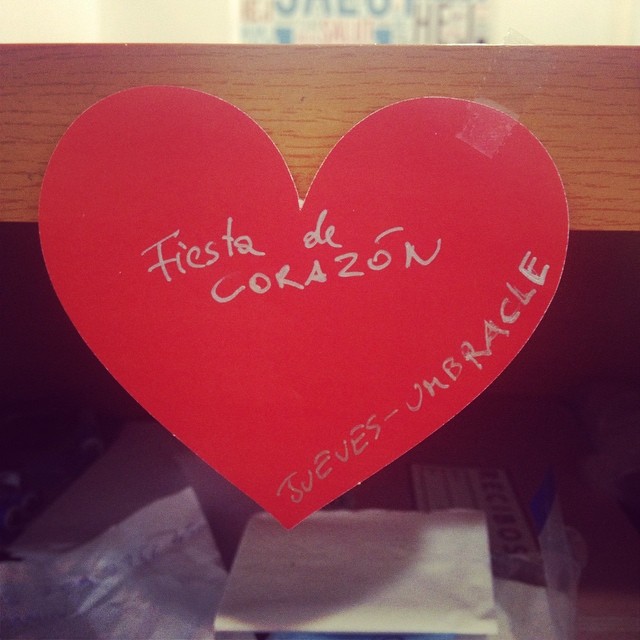 SALUD
HEJ
Fiesta de
CORAZÓN
JUEVES - UMBRACLE
RECIBOS